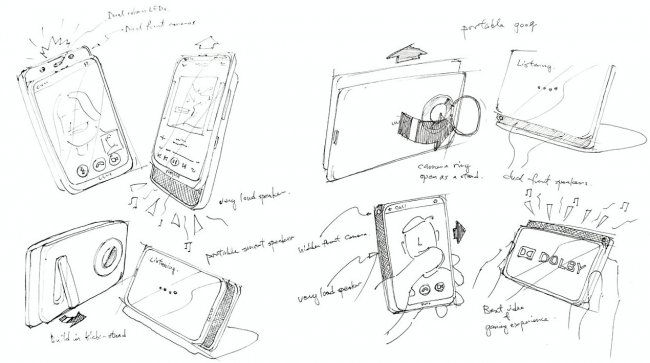 Dual colour LEDs.
Dual front cameras
Call
very loud speaker.
portable goog
Listening.
camera ring
open as a stand.
dual front speakers.
portable smart speaker
Listening.
build in kick-stand
hidden front camera
very loud speaker
Call
DOLBY
Best video
&
gaming experience.